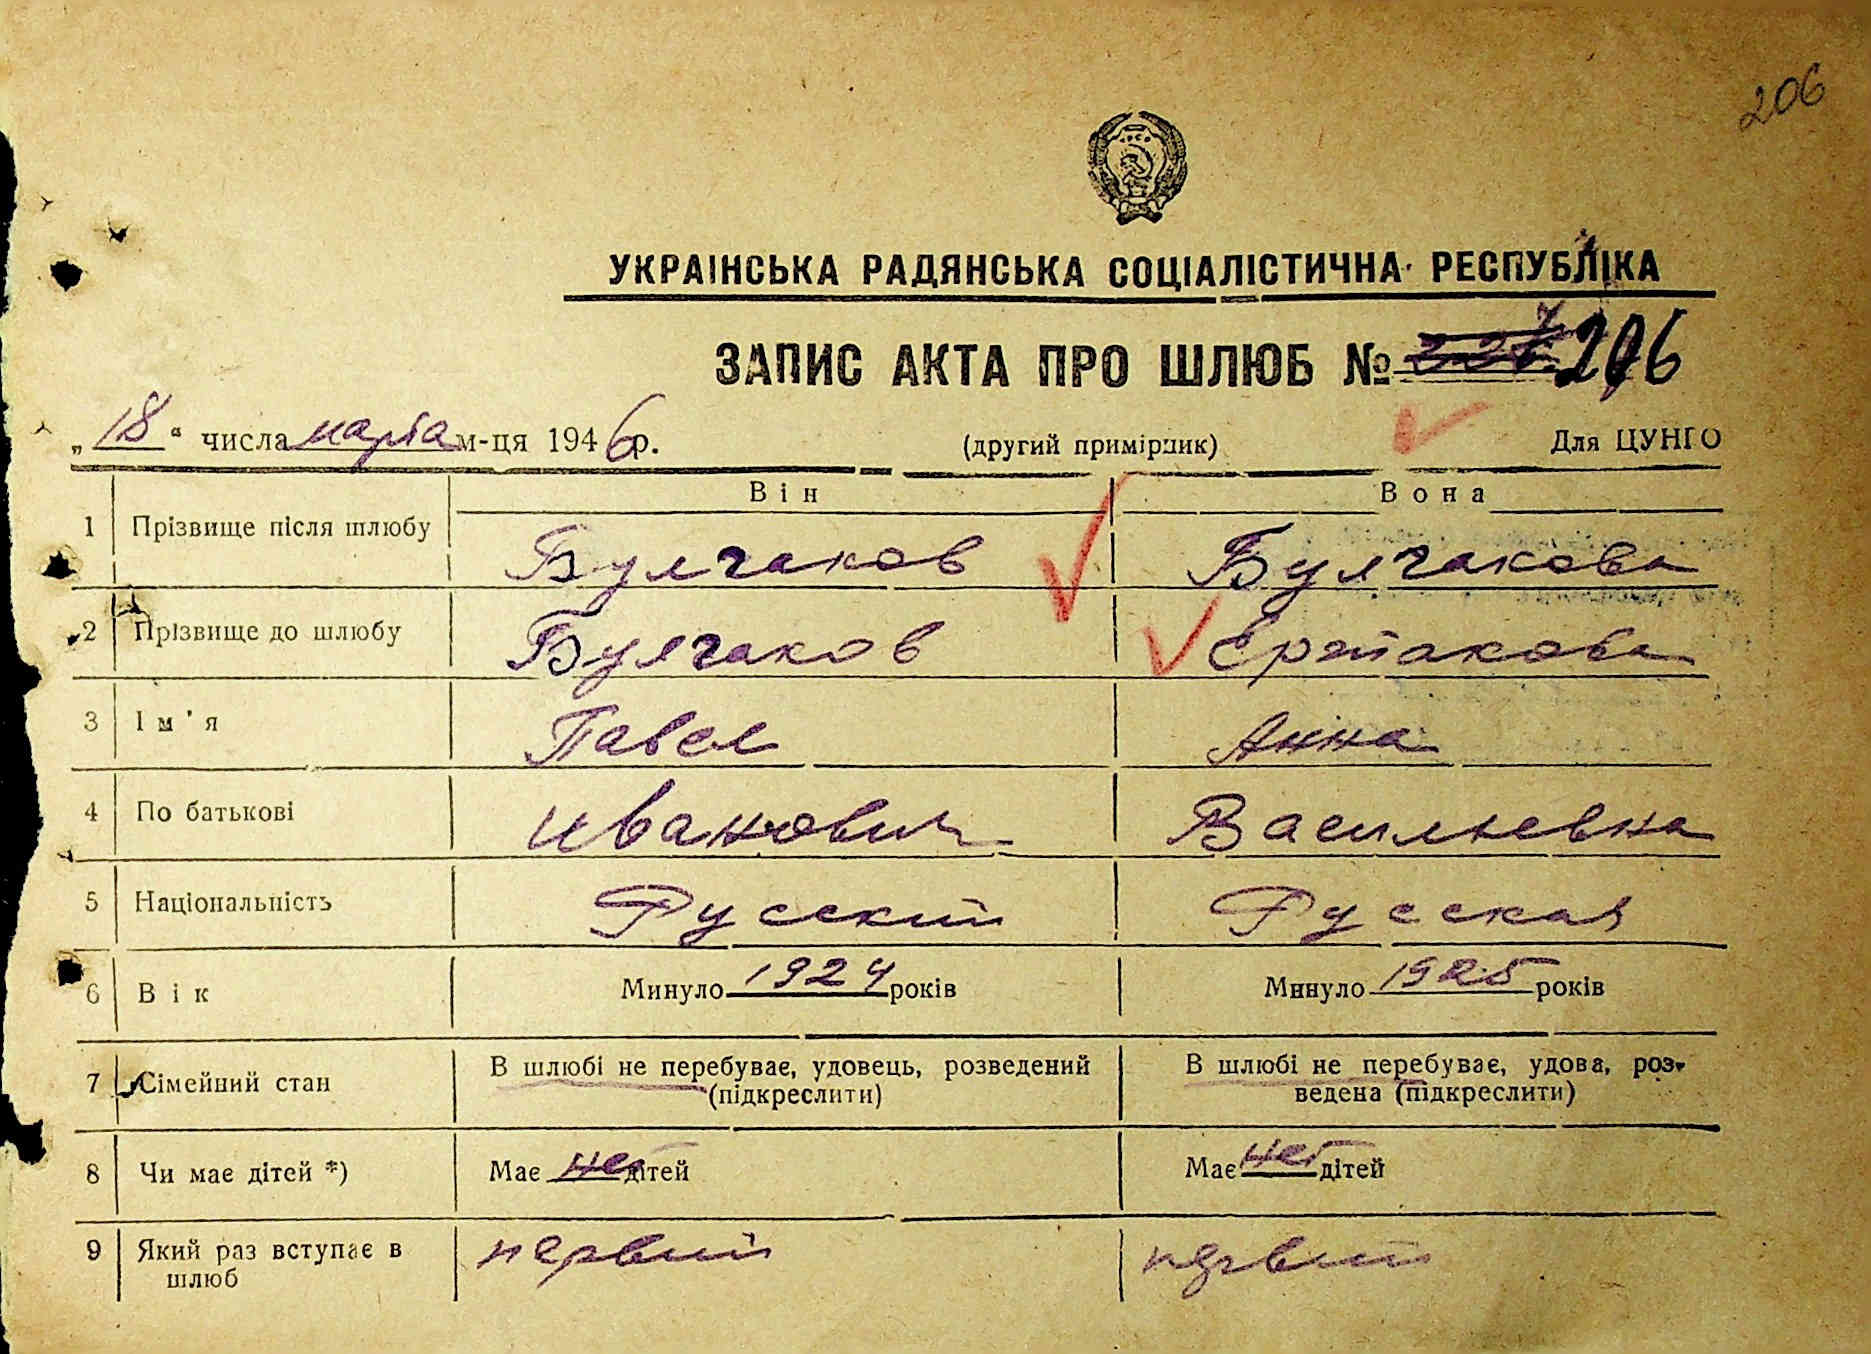 206
УКРАІНСЬКА РАДЯНСЬКА СОЦІАЛІСТИЧНА РЕСПУБЛІКА
ЗАПИС АКТА ПРО ШЛЮБ № 206
„18“ числа марта м-ця 1946 р. (другий примірник) Для ЦУНГО
Він Вона
1 Прізвище після шлюбу Булчаков Булчакова
2 Прізвище до шлюбу Булчаков
3 Ім'я Павел Анна
4 По батькові Иванович Васильевна
5 Національність Русский Русская
6 Вік Минуло 1924 років Минуло 1925 років
7 Сімейний стан В шлюбі не перебуває, удовець, розведений (підкреслити) В шлюбі не перебуває, удова, роз-
ведена (підкреслити)
8 Чи має дітей *) Має нет дітей Має нет дітей
9 Який раз вступає в шлюб первый первый